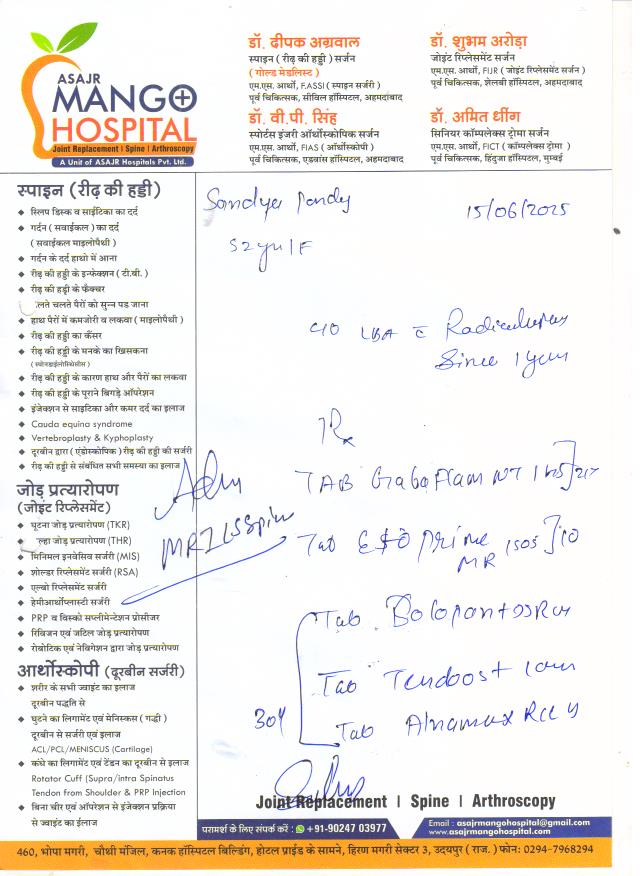 ASAJR
MANGO
HOSPITAL
Joint Replacement | Spine | Arthroscopy
A Unit of ASAJR Hospitals Pvt. Ltd.
डॉ. दीपक अग्रवाल
स्पाइन (रीढ़ की हड्डी) सर्जन
(गोल्ड मेडलिस्ट)
एम.एस. आर्थो, F.ASSI (स्पाइन सर्जरी)
पूर्व चिकित्सक, सीविल हॉस्पिटल, अहमदाबाद
डॉ. शुभम अरोड़ा
जोइंट रिप्लेसमेंट सर्जन
एम.एस. आर्थो, FIJR (जोइंट रिप्लेसमेंट सर्जन)
पूर्व चिकित्सक, शेलबी हॉस्पिटल, अहमदाबाद
डॉ. वी.पी. सिंह
स्पोर्टस इंजरी ऑर्थोस्कोपिक सर्जन
एम.एस. आर्थो, FIAS (ऑर्थोस्कोपी)
पूर्व चिकित्सक, एडवांस हॉस्पिटल, अहमदाबाद
डॉ. अमित धींग
सिनियर कॉम्पलेक्स ट्रोमा सर्जन
एम.एस. आर्थो, FICT (कॉम्पलेक्स ट्रोमा)
पूर्व चिकित्सक, हिंदुजा हॉस्पिटल, मुम्बई
स्पाइन (रीढ़ की हड्डी)
स्लिप डिस्क व साईटिका का दर्द
गर्दन (सवाईकल) का दर्द
(सवाईकल माइलोपैथी)
गर्दन के दर्द हाथो में आना
रीढ़ की हड्डी के इन्फेक्शन (टी.बी.)
रीढ़ की हड्डी के फ्रैक्चर
लते चलते पैरों को सुन्न पड़ जाना
हाथ पैरों में कमजोरी व लकवा (माइलोपैथी)
रीढ़ की हड्डी का कैंसर
रीढ़ की हड्डी के मनके का खिसकना
(स्पोनडाईलोलिस्थेसीस)
रीढ़ की हड्डी के कारण हाथ और पैरों का लकवा
रीढ़ की हड्डी के पूराने बिगड़े ऑपरेशन
इंजेक्शन से साइटिका और कमर दर्द का इलाज
Cauda equina syndrome
Vertebroplasty & Kyphoplasty
दूरबीन द्वारा (एंडोस्कोपिक) रीढ़ की हड्डी की सर्जरी
रीढ़ की हड्डी से संबंधित सभी समस्या का इलाज
जोड़ प्रत्यारोपण
(जोइंट रिप्लेसमेंट)
घूटना जोड़ प्रत्यारोपण (TKR)
ल्हा जोड़ प्रत्यारोपण (THR)
मिनिमल इनवेसिव सर्जरी (MIS)
शोल्डर रिप्लेसमेंट सर्जरी (RSA)
एल्बो रिप्लेसमेंट सर्जरी
हेमीआर्थोप्लास्टी सर्जरी
PRP व विस्को सप्लीमेन्टेशन प्रोसीजर
रिविजन एवं जटिल जोड़ प्रत्यारोपण
रोबोटिक एवं नेविगेशन द्वारा जोड़ प्रत्यारोपण
आर्थोस्कोपी (दूरबीन सर्जरी)
शरीर के सभी ज्वाइंट का इलाज
दूरबीन पद्धति से
घुटने का लिगामेंट एवं मेनिस्कस (गद्दी)
दूरबीन से सर्जरी एवं इलाज
ACL/PCL/MENISCUS (Cartilage)
कंधे का लिगामेंट एवं टेंडन का दूरबीन से इलाज
Rotator Cuff (Supra/intra Spinatus
Tendon from Shoulder & PRP Injection
बिना चीर एवं ऑपरेशन से इंजेक्शन प्रक्रिया
से ज्वाइंट का ईलाज
Sandya Pandy
15/06/2025
52yr/F
c/o LBA c̄ Radiculopathy
Since 1 year
Rx
TAB Gabaflam NT
Adv
MRI LS Spine
Tab ESO prime
MR
Tab
Tab
Tab
Joint Replacement | Spine | Arthroscopy
परामर्श के लिए संपर्क करें : +91-90247 03977
Email : asajrmangohospital@gmail.com
www.asajrmangohospital.com
460, भोपा मगरी, चौथी मंजिल, कनक हॉस्पिटल बिल्डिंग, होटल प्राईड के सामने, हिरण मगरी सेक्टर 3, उदयपुर (राज.) फोन: 0294-7968294